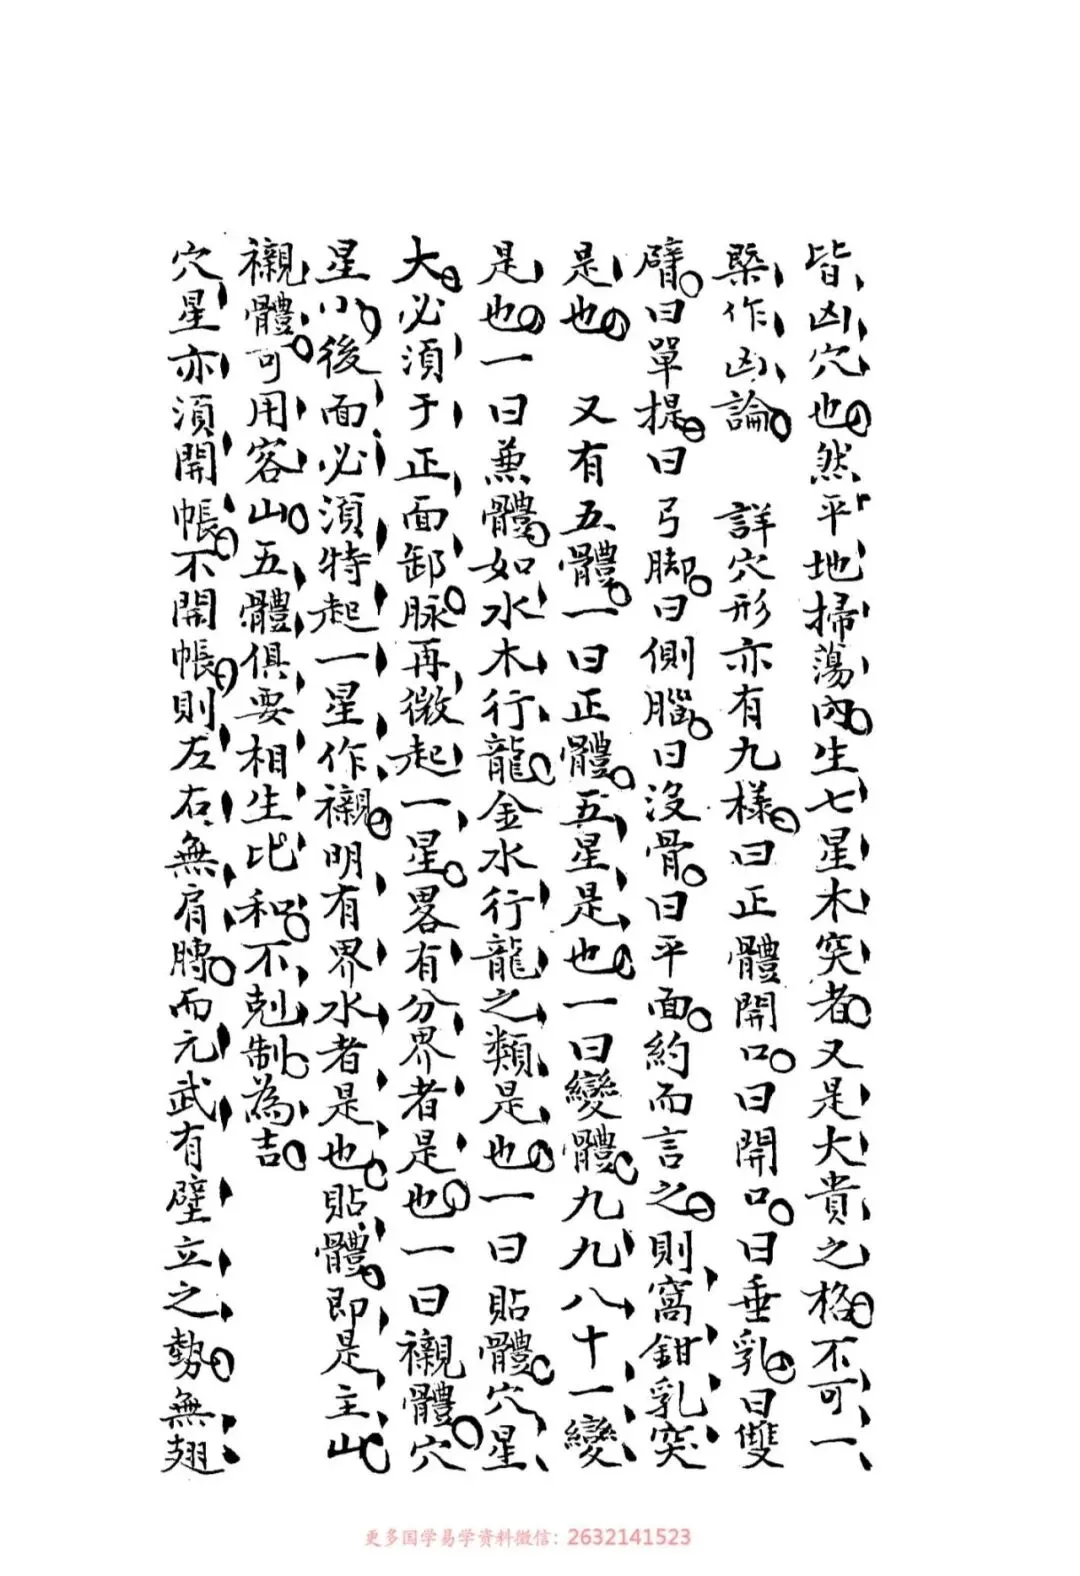 皆凶穴也然平地掃蕩內生七星木突者又是大貴之格不可一
槩作凶論　詳穴形亦有九樣曰正體開口曰開口曰垂乳曰雙
臂曰單提曰弓脚曰側腦曰沒骨曰平面約而言之則窩鉗乳突
是也　又有五體一曰正體五星是也一曰變體九九八十一變
是也一曰蒹體如水木行龍金水行龍之類是也一曰貼體穴星
大必須于正面卸脉再微起一星畧有分界者是也一曰襯體穴
星小後面必須特起一星作襯明有界水者是也貼體即是主山
襯體可用客山五體俱要相生比和不尅制為吉
穴星亦須開帳不開帳則左右無肩膊而元武有壁立之勢無翅
更多国学易学资料微信：2632141523